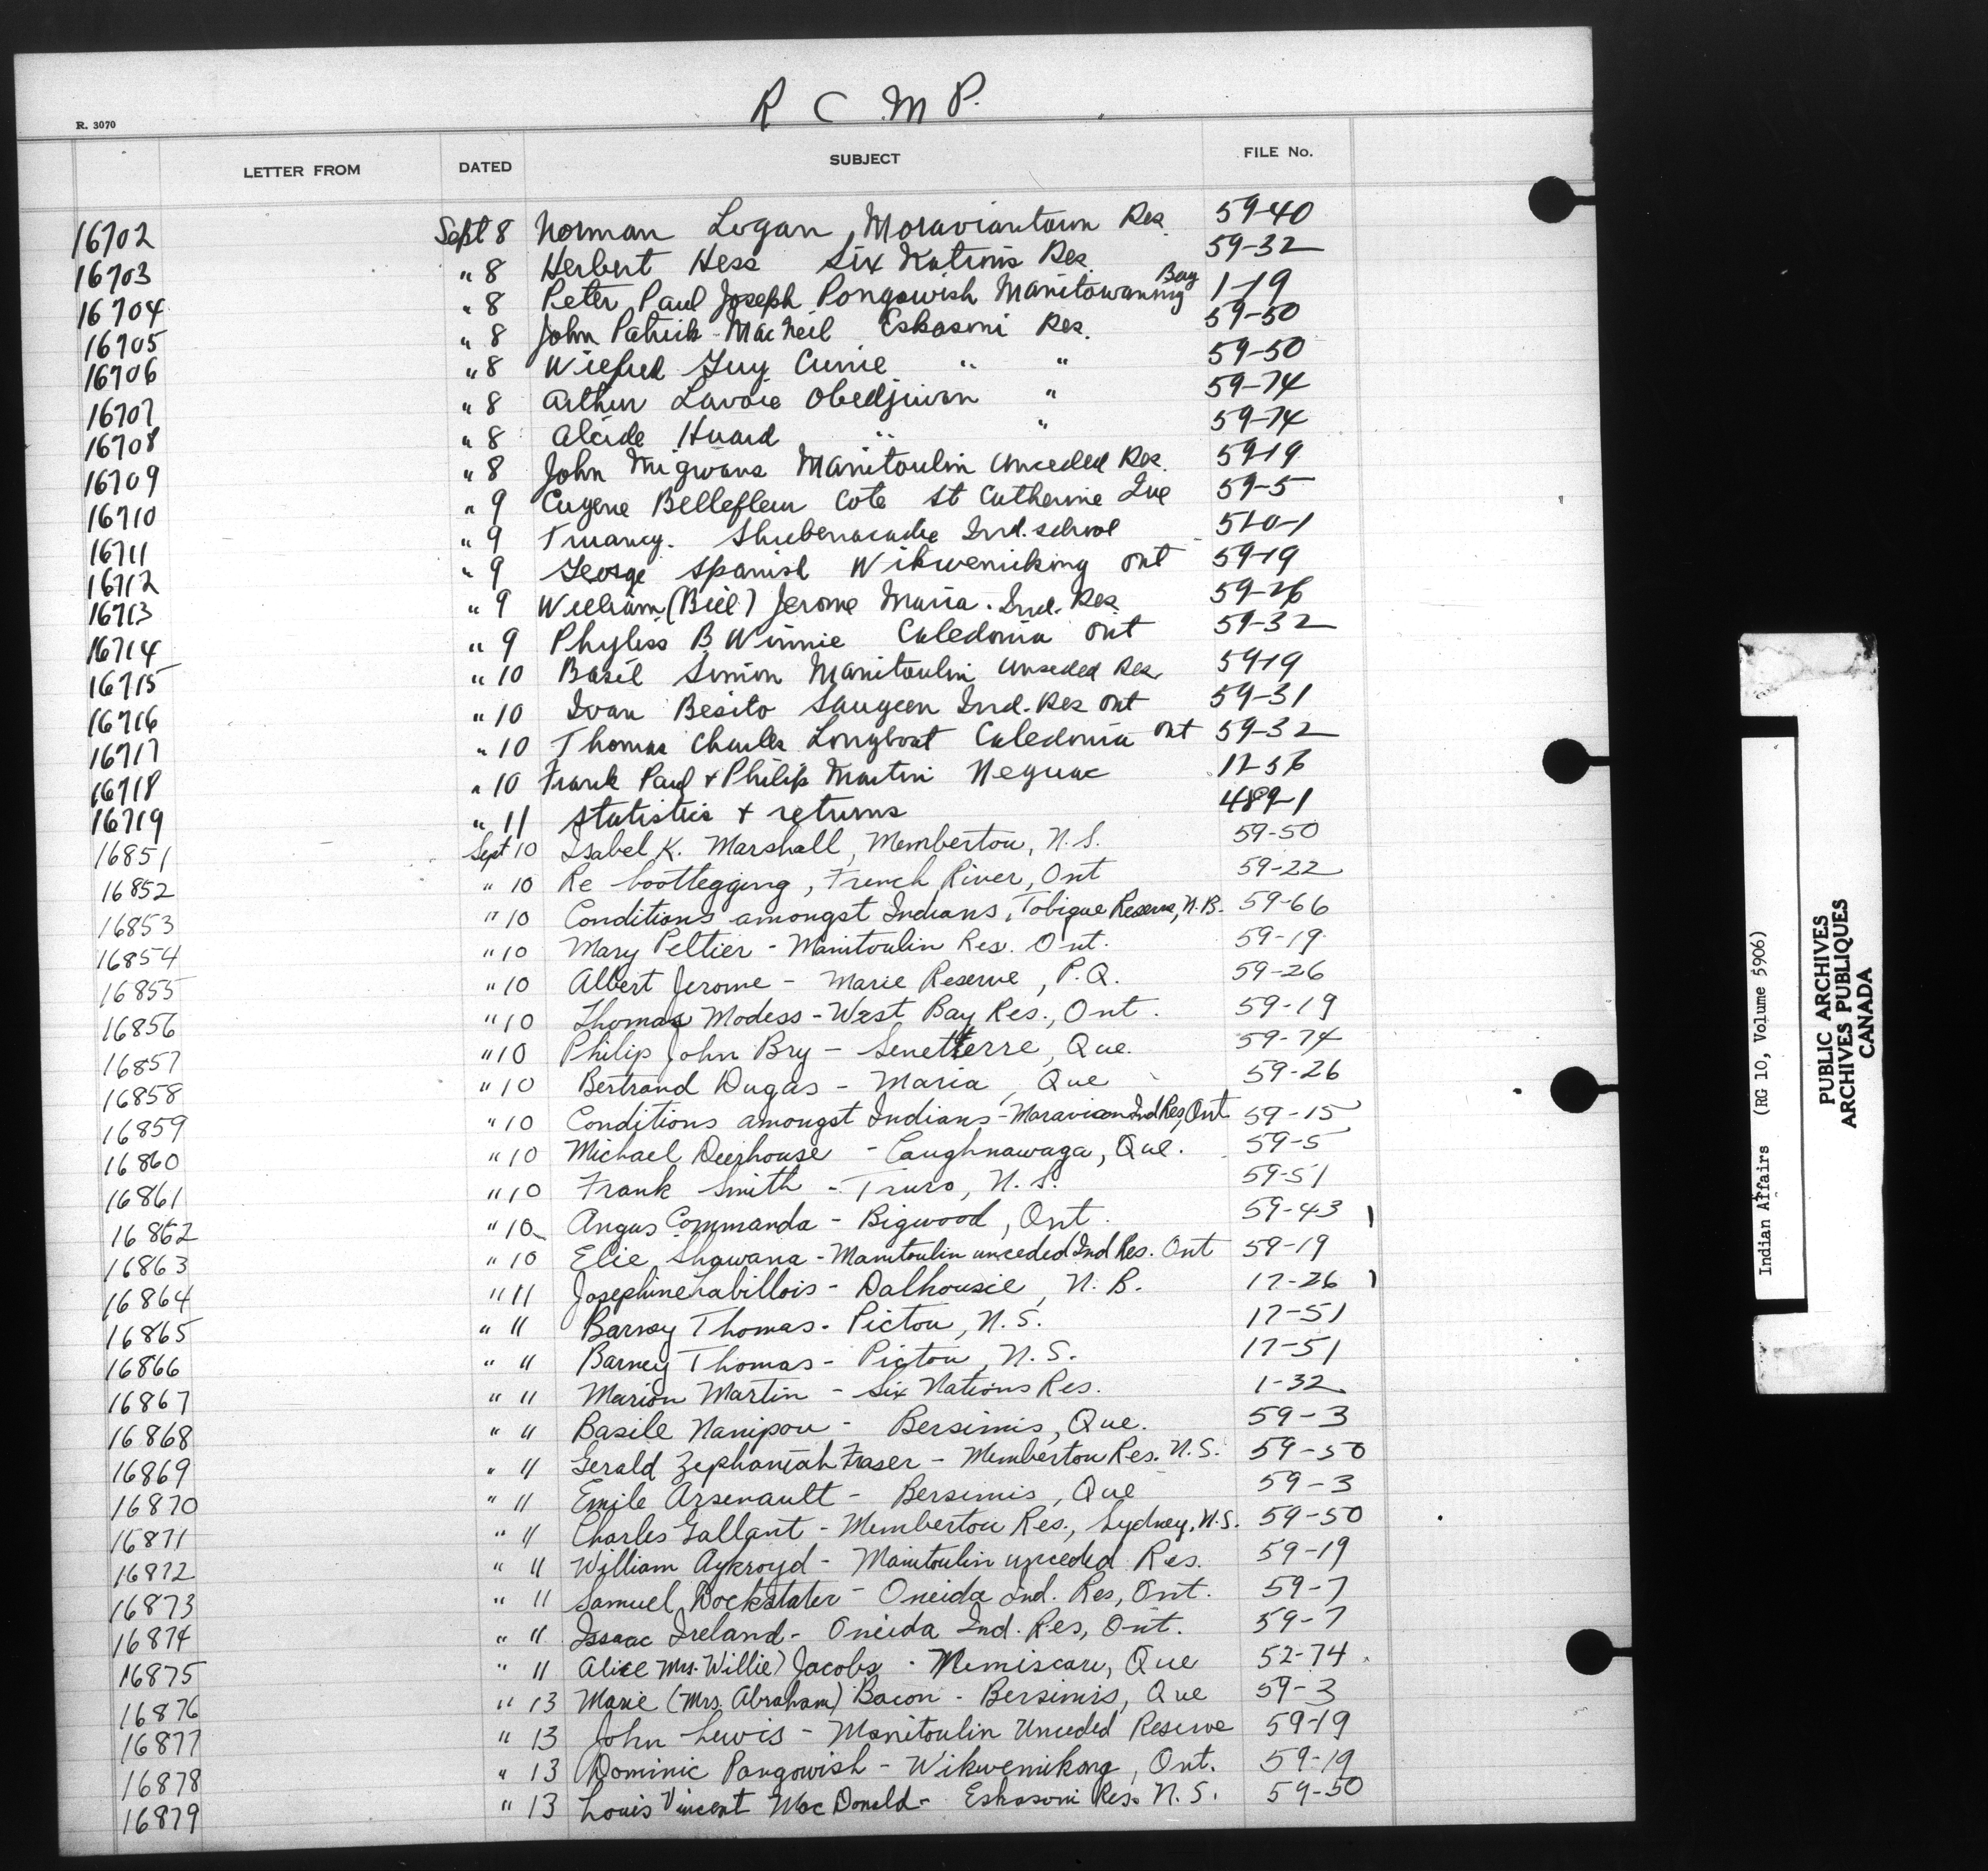 R C M P.
R. 3070
LETTER FROM DATED SUBJECT FILE No.
16702 Sept 8 Norman Logan, Moraviantown Res. 59-40
16703 " 8 Herbert Hess Six Nations Res. 59-32
16704 " 8 Peter Paul Joseph Pongowish Manitowaning Bay 1-19
16705 " 8 John Patrick MacNeil Eskasoni Res. 59-50
16706 " 8 Wilfred Guy Currie " " 59-50
16707 " 8 Arthur Lavoie Obedjiwan " 59-74
16708 " 8 Alcide Huard " " 59-74
16709 " 8 John Migwans Manitoulin Unceded Res. 59-19
16710 " 9 Eugene Bellefleur Cote St Catherine Que 59-5
16711 " 9 Truancy. Shubenacadie Ind. school 510-1
16712 " 9 George Spanish Wikwemiking Ont 59-19
16713 " 9 William (Bill) Jerome Maria. Ind. Res. 59-26
16714 " 9 Phyliss B Winnie Caledonia Ont 59-32
16715 " 10 Basil Simon Manitoulin Unseded Res 59-19
16716 " 10 Ivan Besito Saugeen Ind. Res Ont 59-31
16717 " 10 Thomas Charles Longboat Caledonia Ont 59-32
16718 " 10 Frank Paul + Philip Martin Neguac 17-56
16719 " 11 Statistics + returns 489-1
16851 Sept 10 Isabel K. Marshall, Membertou, N.S. 59-50
16852 " 10 Re bootlegging, French River, Ont 59-22
16853 " 10 Conditions amongst Indians, Tobique Reserve, N.B. 59-66
16854 " 10 Mary Peltier - Manitoulin Res. Ont. 59-19
16855 " 10 Albert Jerome - Marie Reserve, P.Q. 59-26
16856 " 10 Thomas Modess - West Bay Res., Ont. 59-19
16857 " 10 Philip John Bry - Senetterre, Que. 59-74
16858 " 10 Bertrand Dugas - Maria, Que 59-26
16859 " 10 Conditions amongst Indians - Moravian Ind Res, Ont 59-15
16860 " 10 Michael Deerhouse - Caughnawaga, Que. 59-5
16861 " 10 Frank Smith - Truro, N.S. 59-51
16862 " 10 Angus Commanda - Bigwood, Ont. 59-43
16863 " 10 Elie Shawana - Manitoulin unceded Ind Res. Ont 59-19
16864 " 11 Josephine Labillois - Dalhousie, N.B. 17-26
16865 " 11 Barney Thomas - Pictou, N.S. 17-51
16866 " 11 Barney Thomas - Pictou, N.S. 17-51
16867 " 11 Marion Martin - Six Nations Res. 1-32
16868 " 11 Basile Nanipou - Bersimis, Que. 59-3
16869 " 11 Gerald Zephaniah Fraser - Membertou Res. N.S. 59-50
16870 " 11 Emile Arsenault - Bersimis, Que 59-3
16871 " 11 Charles Gallant - Membertou Res., Sydney, N.S. 59-50
16872 " 11 William Aykroyd - Manitoulin unceded Res. 59-19
16873 " 11 Samuel Dockstater - Oneida Ind. Res, Ont. 59-7
16874 " 11 Issaac Ireland - Oneida Ind. Res, Ont. 59-7
16875 " 11 Alice Mrs. Willie) Jacobs - Nemiscau, Que 52-74
16876 " 13 Marie (Mrs. Abraham) Bacon - Bersimis, Que 59-3
16877 " 13 John Lewis - Manitoulin Unceded Reserve 59-19
16878 " 13 Dominic Pangowish - Wikwemikong, Ont. 59-19
16879 " 13 Louis Vincent MacDonald - Eskasoni Res. N.S. 59-50
Indian Affairs (RG 10, Volume 5906)
PUBLIC ARCHIVES
ARCHIVES PUBLIQUES
CANADA